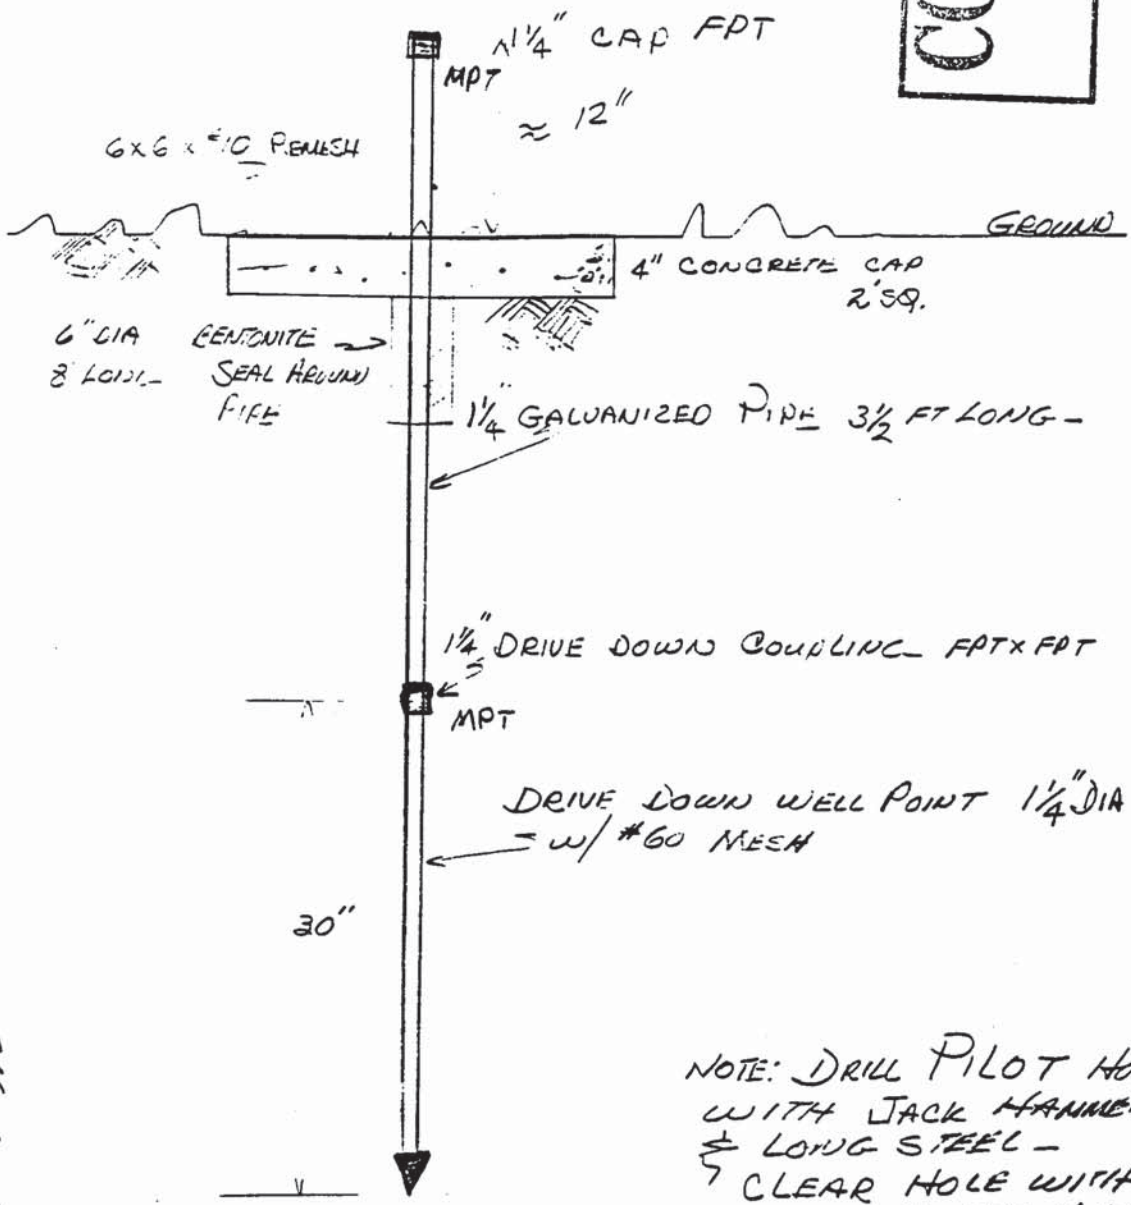 1 1/4" CAP FPT
MPT
≈ 12"
6x6 x #10 REMESH
GROUND
4" CONCRETE CAP
2' SQ.
6" DIA
8" LONG
BENTONITE
SEAL AROUND
PIPE
1 1/4" GALVANIZED PIPE 3 1/2 FT LONG -
1 1/4" DRIVE DOWN COUPLING FPT x FPT
MPT
DRIVE DOWN WELL POINT 1 1/4" DIA
w/ #60 MESH
30"
NOTE: DRILL PILOT HO
WITH JACK HAMME
& LONG STEEL -
CLEAR HOLE WITH
CO